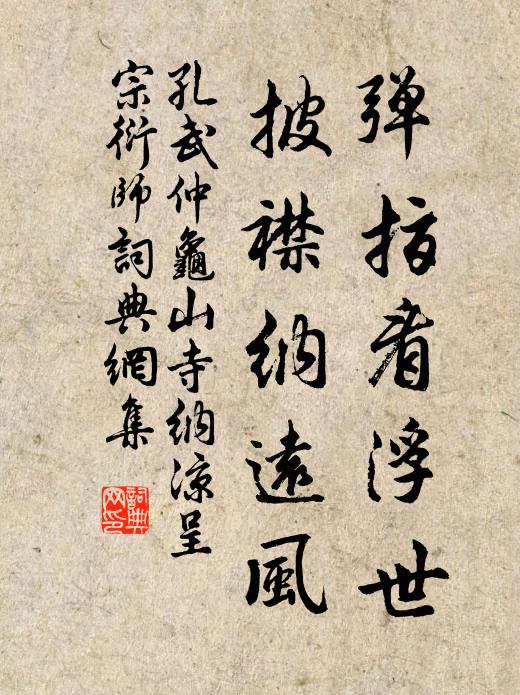 弹指看浮世
披襟纳遠風
孔武仲龜山寺纳凉呈
宗衍师詞典網集
詞典
网印